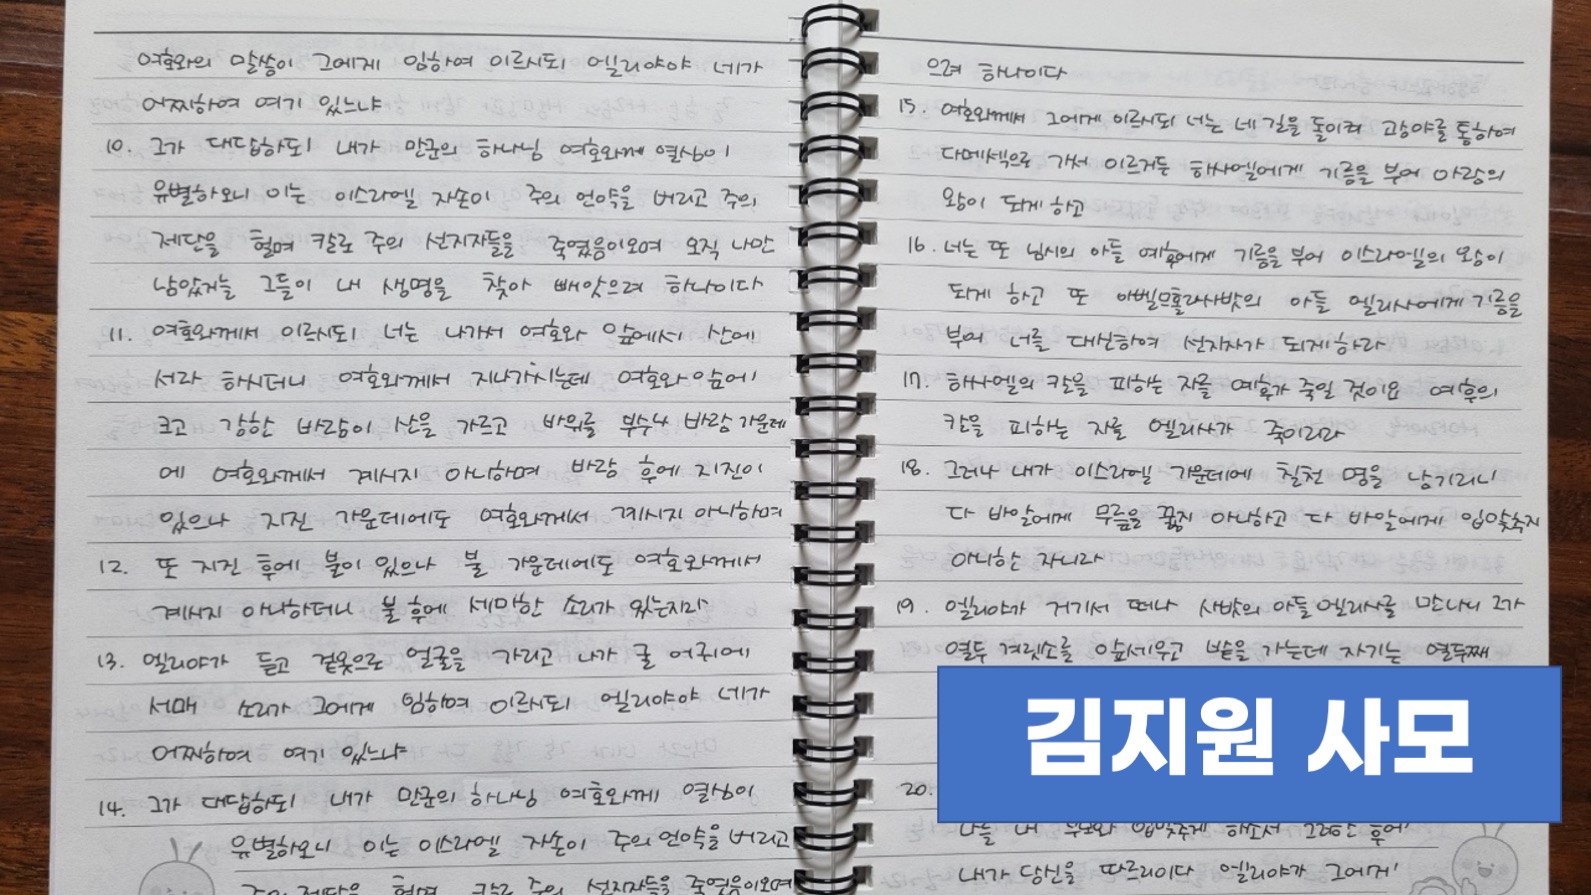 여호와의 말씀이 그에게 임하여 이르시되 엘리야야 네가
어찌하여 여기 있느냐
10. 그가 대답하되 내가 만군의 하나님 여호와께 열심이
유별하오니 이는 이스라엘 자손이 주의 언약을 버리고 주의
제단을 헐며 칼로 주의 선지자들을 죽였음이오며 오직 나만
남았거늘 그들이 내 생명을 찾아 빼앗으려 하나이다
11. 여호와께서 이르시되 너는 나가서 여호와 앞에서 산에
서라 하시더니 여호와께서 지나가시는데 여호와 앞에
크고 강한 바람이 산을 가르고 바위를 부수나 바람 가운데
에 여호와께서 계시지 아니하며 바람 후에 지진이
있으나 지진 가운데에도 여호와께서 계시지 아니하며
12. 또 지진 후에 불이 있으나 불 가운데에도 여호와께서
계시지 아니하더니 불 후에 세미한 소리가 있는지라
13. 엘리야가 듣고 겉옷으로 얼굴을 가리고 나가 굴 어귀에
서매 소리가 그에게 임하여 이르시되 엘리야야 네가
어찌하여 여기 있느냐
14. 그가 대답하되 내가 만군의 하나님 여호와께 열심이
유별하오니 이는 이스라엘 자손이 주의 언약을 버리고
주의 제단을 헐며 칼로 주의 선지자들을 죽였음이오며
으려 하나이다
15. 여호와께서 그에게 이르시되 너는 네 길을 돌이켜 광야를 통하여
다메섹으로 가서 이르거든 하사엘에게 기름을 부어 아람의
왕이 되게 하고
16. 너는 또 님시의 아들 예후에게 기름을 부어 이스라엘의 왕이
되게 하고 또 아벨므홀라 사밧의 아들 엘리사에게 기름을
부어 너를 대신하여 선지자가 되게 하라
17. 하사엘의 칼을 피하는 자를 예후가 죽일 것이요 예후의
칼을 피하는 자를 엘리사가 죽이리라
18. 그러나 내가 이스라엘 가운데에 칠천 명을 남기리니
다 바알에게 무릎을 꿇지 아니하고 다 바알에게 입맞추지
아니한 자니라
19. 엘리야가 거기서 떠나 사밧의 아들 엘리사를 만나니 그가
열두 겨릿소를 앞세우고 밭을 가는데 자기는 열두째
김지원 사모
20.
나를 내 부모와 입맞추게 하소서 그리한 후에
내가 당신을 따르리이다 엘리야가 그에게